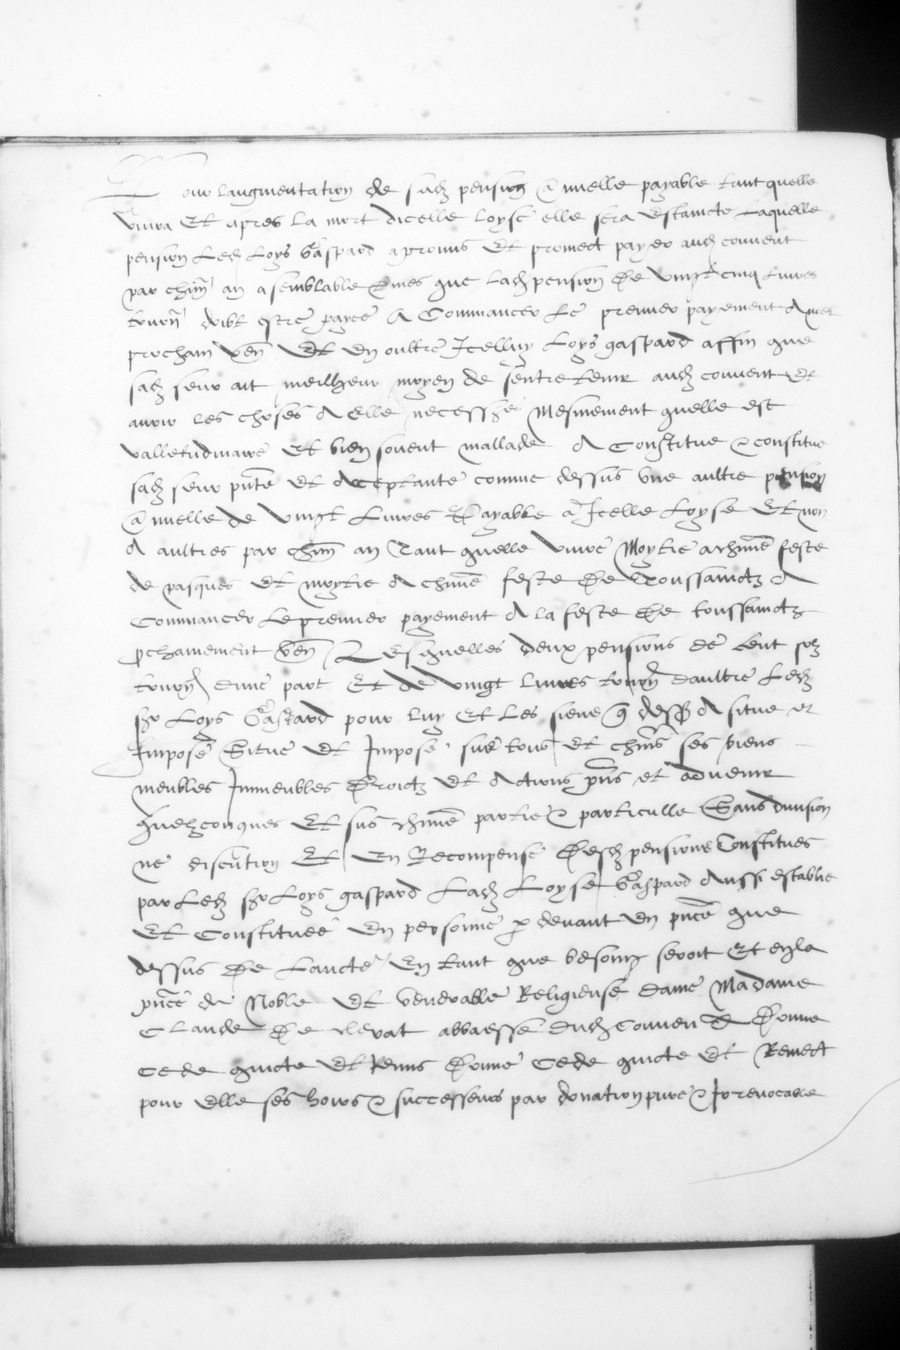 Pour laugmentation de sad pension annuelle payable tant quelle
vivra Et apres la mort dicelle loyse elle sera estaincte Laquelle
pension Led Loys Gaspard a promis Et promect payer aud couvent
par chun an a semblable que lad pension De vingt cinq livres
tourn doibt estre payee A Commancer Le premier payement A
prochain ven Et En oultre Icelluy Loys gaspard affin que
sad seur ait meilheur moyen de sentretenir aud couvent Et
avoir les choses A elle necesse Mesmement quelle est
valletudinaire Et bien sovent mallade A Constitue & constitue
sad seur pnte Et Acceptante comme dessus une aultre pension
annuelle de vingt Livres Payable a Icelle Loyse Et non
A aultres par chun an Tant quelle vivre Moytie a chune feste
de pasques Et moytie A chune feste De Toussainctz A
Commancer Le premier payement A la feste De toussainctz
prochainement ven Lesquelles deux pensions de Cent solz
tourn dune part Et de vingt livres tourn daultre Led
sr Loys Gaspard pour luy Et Les siens q dess A situe et
Impose Situe Et Impose sur tous Et chuns ses biens
meubles Immeubles Droictz Et Actions pns et advenir
quelzconques Et sus chune partie & particulle Sans division
ne discution Et En Recompense Desd pensions Constitues
par Led sr Loys gaspard Lad Loyse Gaspard Aussi establie
Et Constituee En personne p devant En pnce que
dessus De Laucte En tant que besoing seroit Et en la
pnce de Noble Et venerable Religieuse dame Madame
Claude De abbaesse dud Couvent Donne
cede quicte Et Remis Donne Cede quicte Et Remect
pour Elle ses hoirs & successeurs par donation pure & Irrevocable